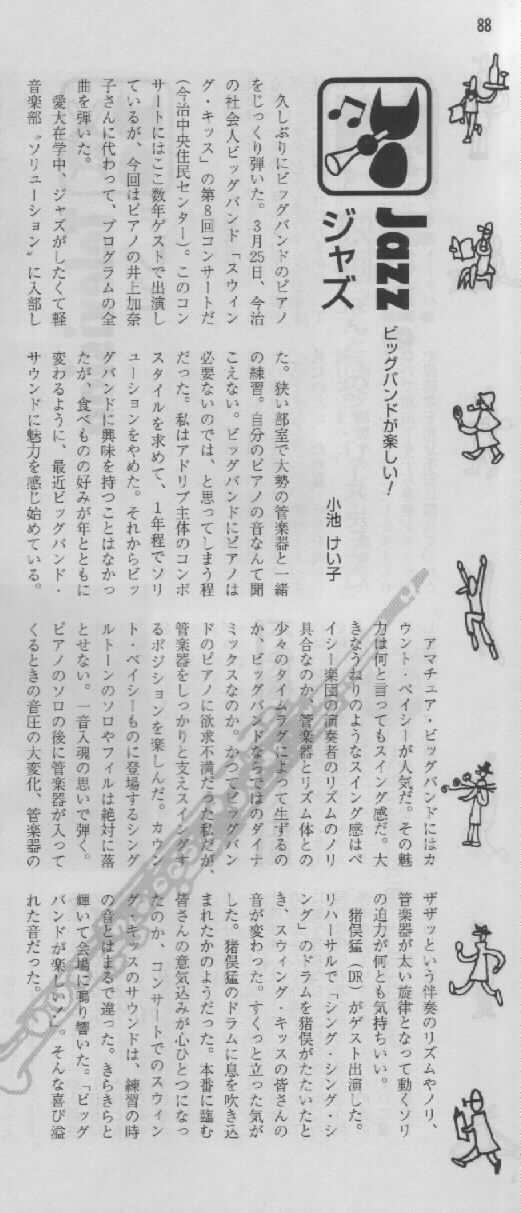 88
Jazz
ジャズ
ビッグバンドが楽しい!
小池 けい子
久しぶりにビッグバンドのピアノ
をじっくり弾いた。3月25日、今治
の社会人ビッグバンド「スウィン
グ・キッズ」の第8回コンサートだ
(今治中央住民センター)。このコン
サートにはここ数年ゲストで出演し
ているが、今回はピアノの井上加奈
子さんに代わって、プログラムの全
曲を弾いた。
愛大在学中、ジャズがしたくて軽
音楽部〝ソリューション〟に入部し
た。狭い部室で大勢の管楽器と一緒
の練習。自分のピアノの音なんて聞
こえない。ビッグバンドにピアノは
必要ないのでは、と思ってしまう程
だった。私はアドリブ主体のコンボ
スタイルを求めて、1年程でソリ
ューションをやめた。それからビッ
グバンドに興味を持つことはなかっ
たが、食べものの好みが年とともに
変わるように、最近ビッグバンド・
サウンドに魅力を感じ始めている。
アマチュア・ビッグバンドにはカ
ウント・ベイシーが人気だ。その魅
力は何と言ってもスイング感だ。大
きなうねりのようなスイング感はベ
イシー楽団の演奏者のリズムのノリ
具合なのか、管楽器とリズム体との
少々のタイムラグによって生ずるの
か、ビッグバンドならではのダイナ
ミックスなのか。かつてビッグバン
ドのピアノに欲求不満だった私だが、
管楽器をしっかりと支えスイングす
るポジションを楽しんだ。カウン
ト・ベイシーものに登場するシング
ルトーンのソロやフィルは絶対に落
とせない。一音入魂の思いで弾く。
ピアノのソロの後に管楽器が入って
くるときの音圧の大変化、管楽器の
ザザッという伴奏のリズムやノリ、
管楽器が太い旋律となって動くソリ
の迫力が何とも気持ちいい。
猪俣猛(DR)がゲスト出演した。
リハーサルで「シング・シング・シ
ング」のドラムを猪俣がたたいたと
き、スウィング・キッズの皆さんの
音が変わった。すくっと立った気が
した。猪俣猛のドラムに息を吹き込
まれたかのようだった。本番に臨む
皆さんの意気込みが心ひとつになっ
たのか、コンサートでのスウィン
グ・キッズのサウンドは、練習の時
の音とはまるで違った。きらきらと
輝いて会場に鳴り響いた。「ビッグ
バンドが楽しい!」。そんな喜び溢
れた音だった。